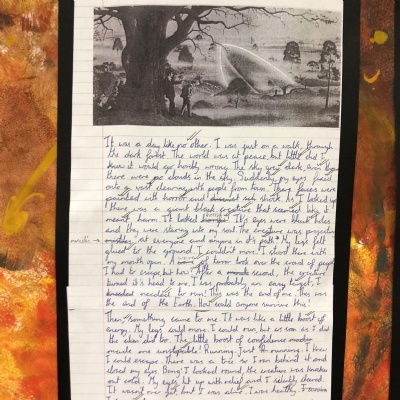 It was a day like no other. I was just on a walk through
the dark forest. The world was at peace, but little did I
know it would go horribly wrong. The sky grew dark, even though
there were no clouds in the sky. Suddenly, my eyes faced
onto a vast clearing with people from town. There faces were
painted with horror and shock. As I looked up
there was a giant cloud creature that seemed like it
meant harm. It looked It's eyes were black holes
and they were staring into my soul. The creature was projecting
missiles
at everyone and anyone in it's path. My legs felt
glued to the ground. I couldn't move. I stood there with
my mouth open. A of terror took over the crowd of people
I had to escape but how? After a second, the creature
turned it's head to me. I was probably an easy target, I
needed to run! This was the end of me. This was
the end of the Earth. How could anyone survive this!
Then, something came to me. It was like a little boost of
energy. My legs could move. I could run, but as soon as I did
the clan did too. The little boost of confidence
made me unstoppable! Running. Just running. I knew
I could escape. There was a tree so I ran behind it and
closed my eyes. Bang! I looked round, the creature was knocked
out cold. My eyes lit up with relief and I silently cheered.
It wasn't over yet, but I was alive. I was healthy.